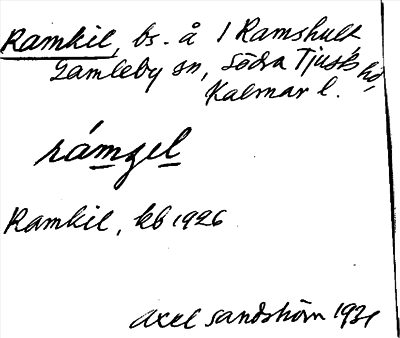 Ramkil, bs. å 1 Ramshult
Gamleby sn, Södra Tjusts hd,
Kalmar l.
rámgel
Ramkil, kb 1926
Axel Sandström 1931